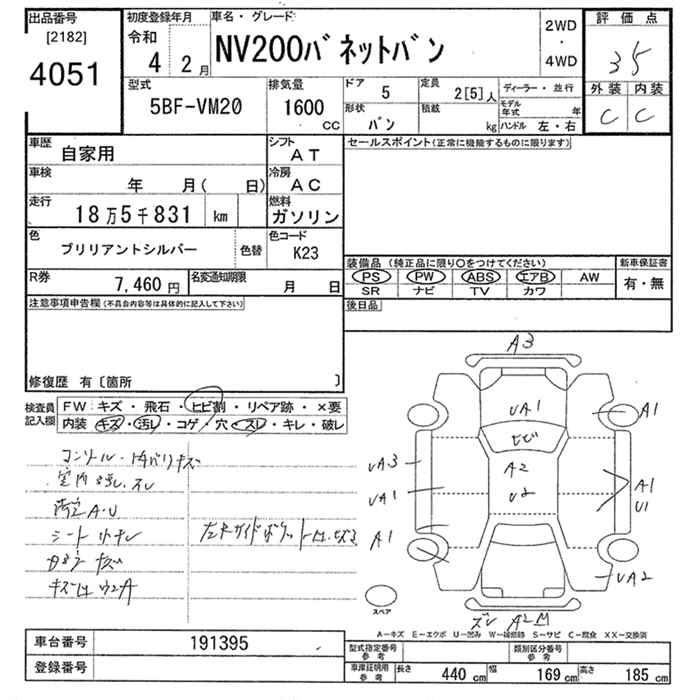 出品番号
[2182]
4051
初度登録年月
令和
4 2月
車名・グレード
NV200バネットバン
2WD
・
4WD
評価点
3.5
外装 内装
C C
型式
5BF-VM20
排気量
1600
CC
ドア 5
定員 2[5]人
ディーラー・並行
形状 バン
積載 kg
モデル年式 年
ハンドル 左・右
車歴
自家用
シフト
AT
セールスポイント(正常に機能するものに限ります)
車検
年 月( 日)
冷房
AC
走行
18万5千831 km
燃料
ガソリン
色
ブリリアントシルバー
色替
色コード
K23
装備品(純正品に限り○をつけてください)
新車保証書
PS PW ABS エアB AW
有・無
SR ナビ TV カワ
R券
7,460円
名変通知期限
月 日
後日品
注意事項申告欄(不具合内容等は具体的に記入して下さい)
修復歴 有〔箇所 〕
検査員
記入欄
FW:キズ・飛石・ヒビ割・リペア跡・×要
内装 キズ・汚レ・コゲ・穴・スレ・キレ・破レ
室内汚レ・スレ
荷室A・U
A3
UA1
ヒビ
A1
A2
U2
UA3
UA1
A1
A1
U1
UA2
スペア
ズレ A2M
A−キズ E−エクボ U−凹み W−補修跡 S−サビ C−腐食 XX−交換済
車台番号
191395
登録番号
型式指定番号
参考
類別区分番号
参考
車庫証明用
参考
長さ 440 cm 幅 169 cm 高さ 185 cm